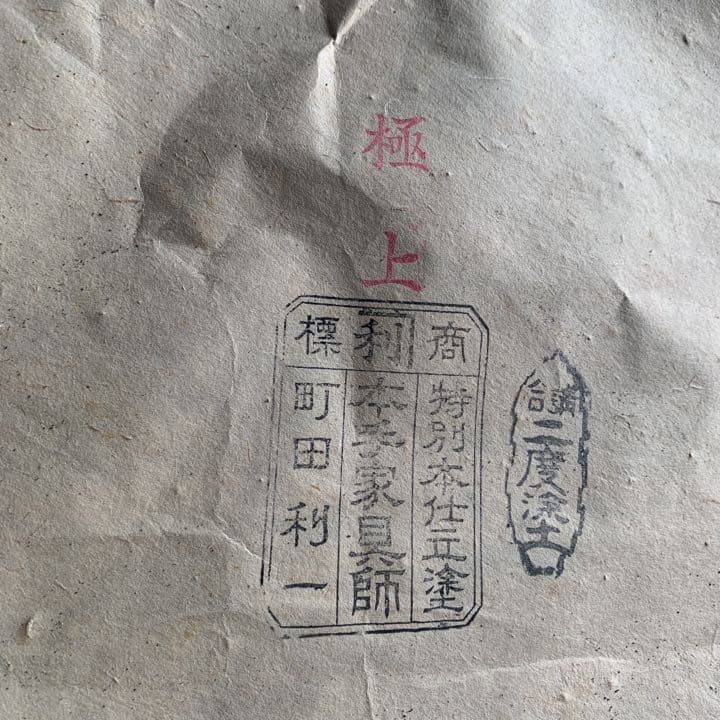 極上
商利標
特別本仕立塗
本手家具師
町田利一
請合
二度塗